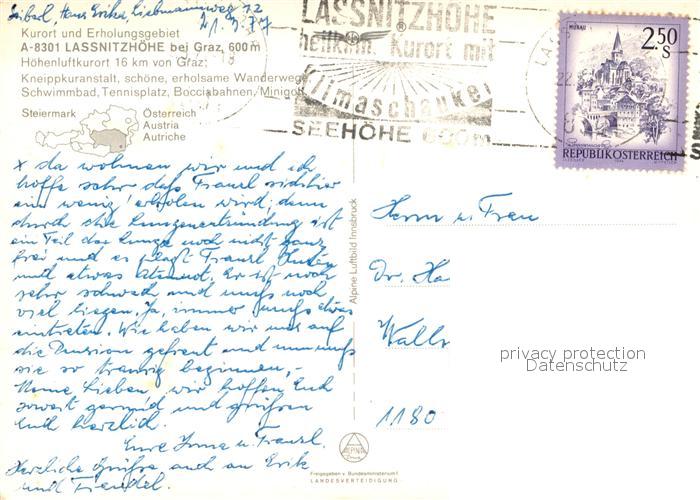 Kurort und Erholungsgebiet
A-8301 LASSNITZHÖHE bei Graz, 600 m
Höhenluftkurort 16 km von Graz;
Kneippkuranstalt, schöne, erholsame Wanderwege
Schwimmbad, Tennisplatz, Bocciabahnen, Minigolf
Steiermark
Österreich
Austria
Autriche
LASSNITZHÖHE
heilklim. Kurort mit
Klimaschaukel
SEEHÖHE 600m
MURAU
2.50
S
REPUBLIK ÖSTERREICH
x da wohnen wir und ich
hoffe sehr daß Franzl sich hier
ein wenig erholen wird, denn
durch die Lungenentzündung ist
ein Teil der Lunge noch nicht ganz
frei und es plagt Franzl Husten
und etwas Atemnot. Er ist noch
sehr schwach und muß noch
viel liegen. Ja, immer muß etwas
eintreten. Wie haben wir uns auf
die Pension gefreut und nun muß
sie so traurig beginnen,-
Meine Lieben, wir hoffen Euch
soweit gesund und grüßen
Euch herzlich.
Eure Irma u. Franzl.
Herzliche Grüße auch an Erik
und
Alpine Luftbild Innsbruck
Herrn u. Frau
Dr. Ha
Walls
1180
privacy protection
Datenschutz
ALPINE
Freigegeben v. Bundesministerium f.
LANDESVERTEIDIGUNG